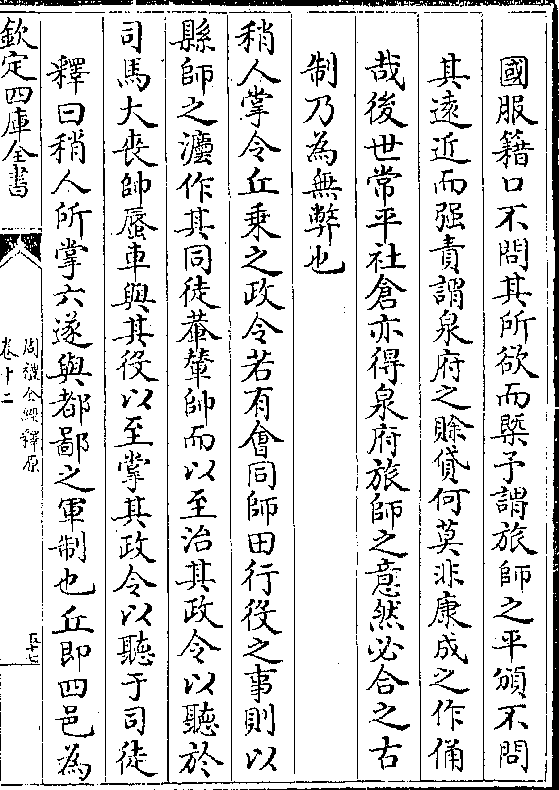 國服籍口不問其所欲而槩予謂旅師之平頒不問
其遠近而强責謂泉府之賖貸何莫非康成之作俑
哉後世常平社倉亦得泉府旅師之意然必合之古
制乃為無弊也
稍人掌令丘乗之政令若有會同師田行役之事則以
縣師之灋作其同徒輂輦帥而以至治其政令以聽於
司馬大喪帥蜃車與其役以至掌其政令以聽于司徒
釋曰稍人所掌六遂與都鄙之軍制也丘即四邑為
欽定四庫全書
周禮全經釋原
卷十二
五十七